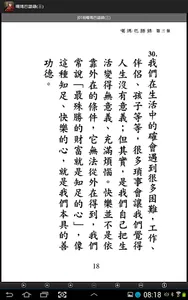 30. 我們在生活中的確會遇到很多困難,工作、
伴侶、孩子等等,很多瑣事會讓我們覺得
人生沒有意義;但其實,是我們自己把生
活變得無意義、充滿煩惱。快樂並不是依
靠外在的條件,它無法從外在得到,我們
常說「最殊勝的財富就是知足的心」,像
這種知足、快樂的心,就是我們本具的善
功德。
18
08:18